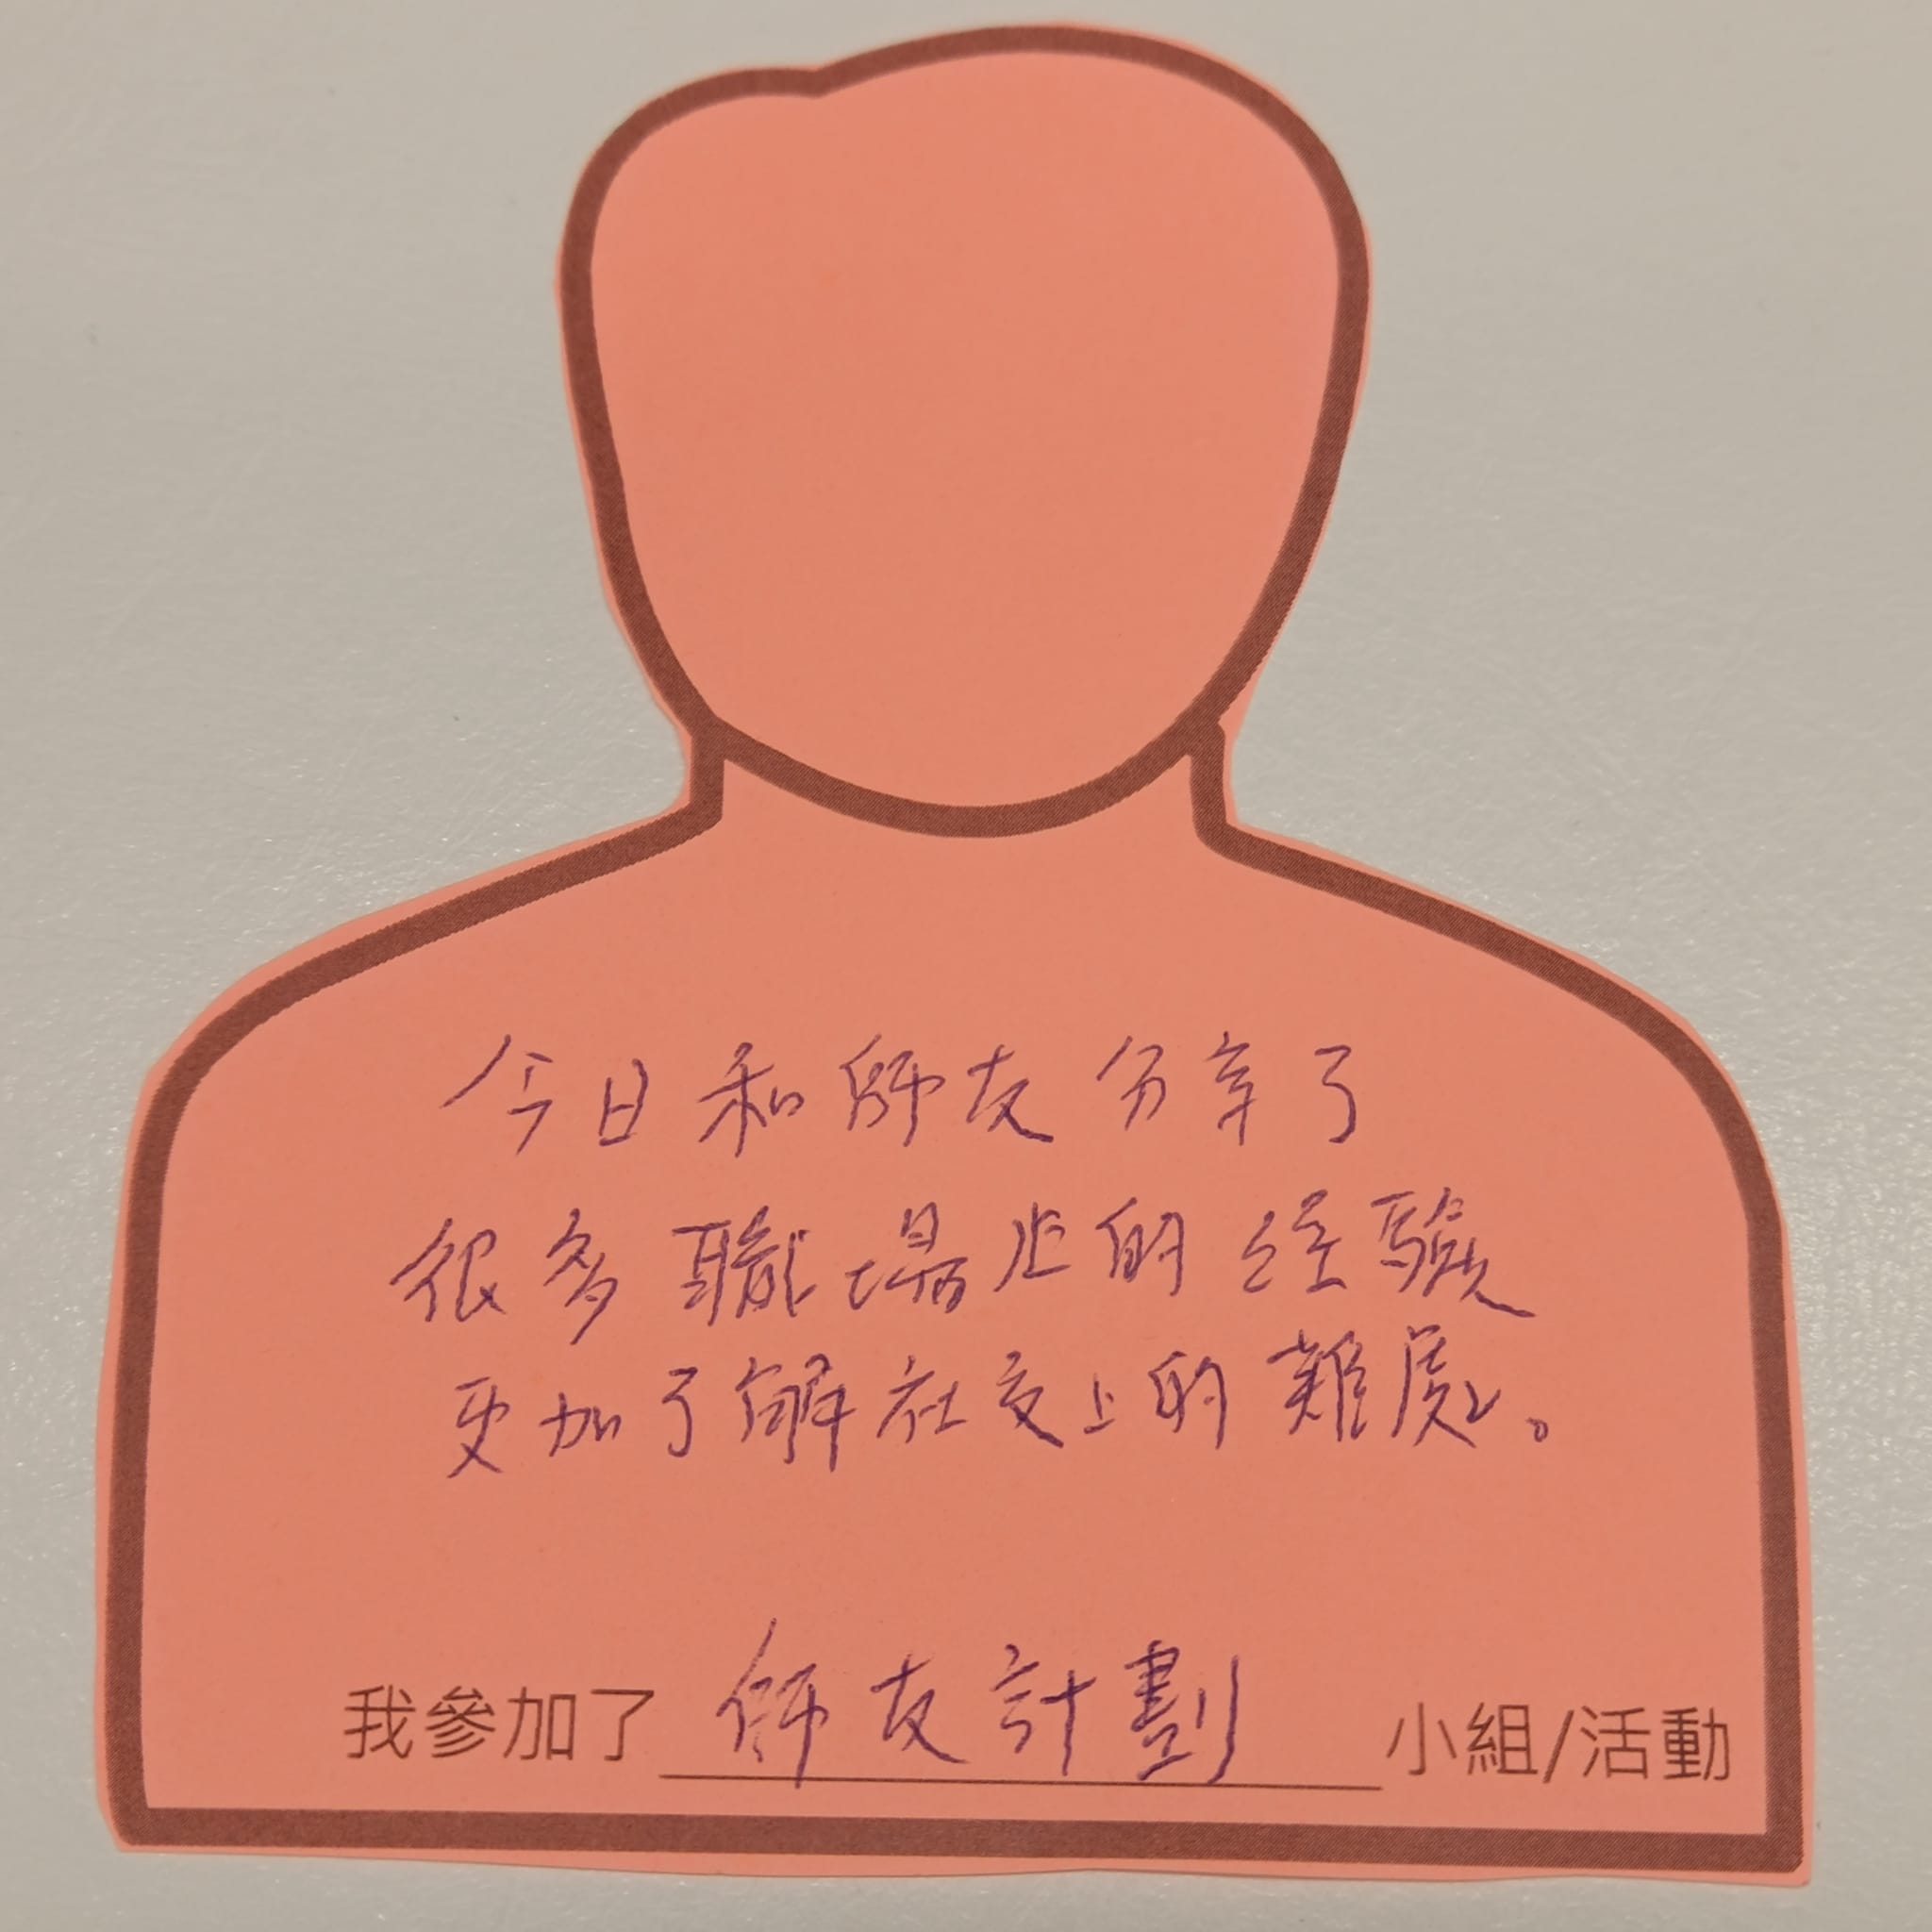 今日和師友分享了
很多職場上的經驗
更加了解社交上的難處。
我參加了 師友計劃 小組/活動